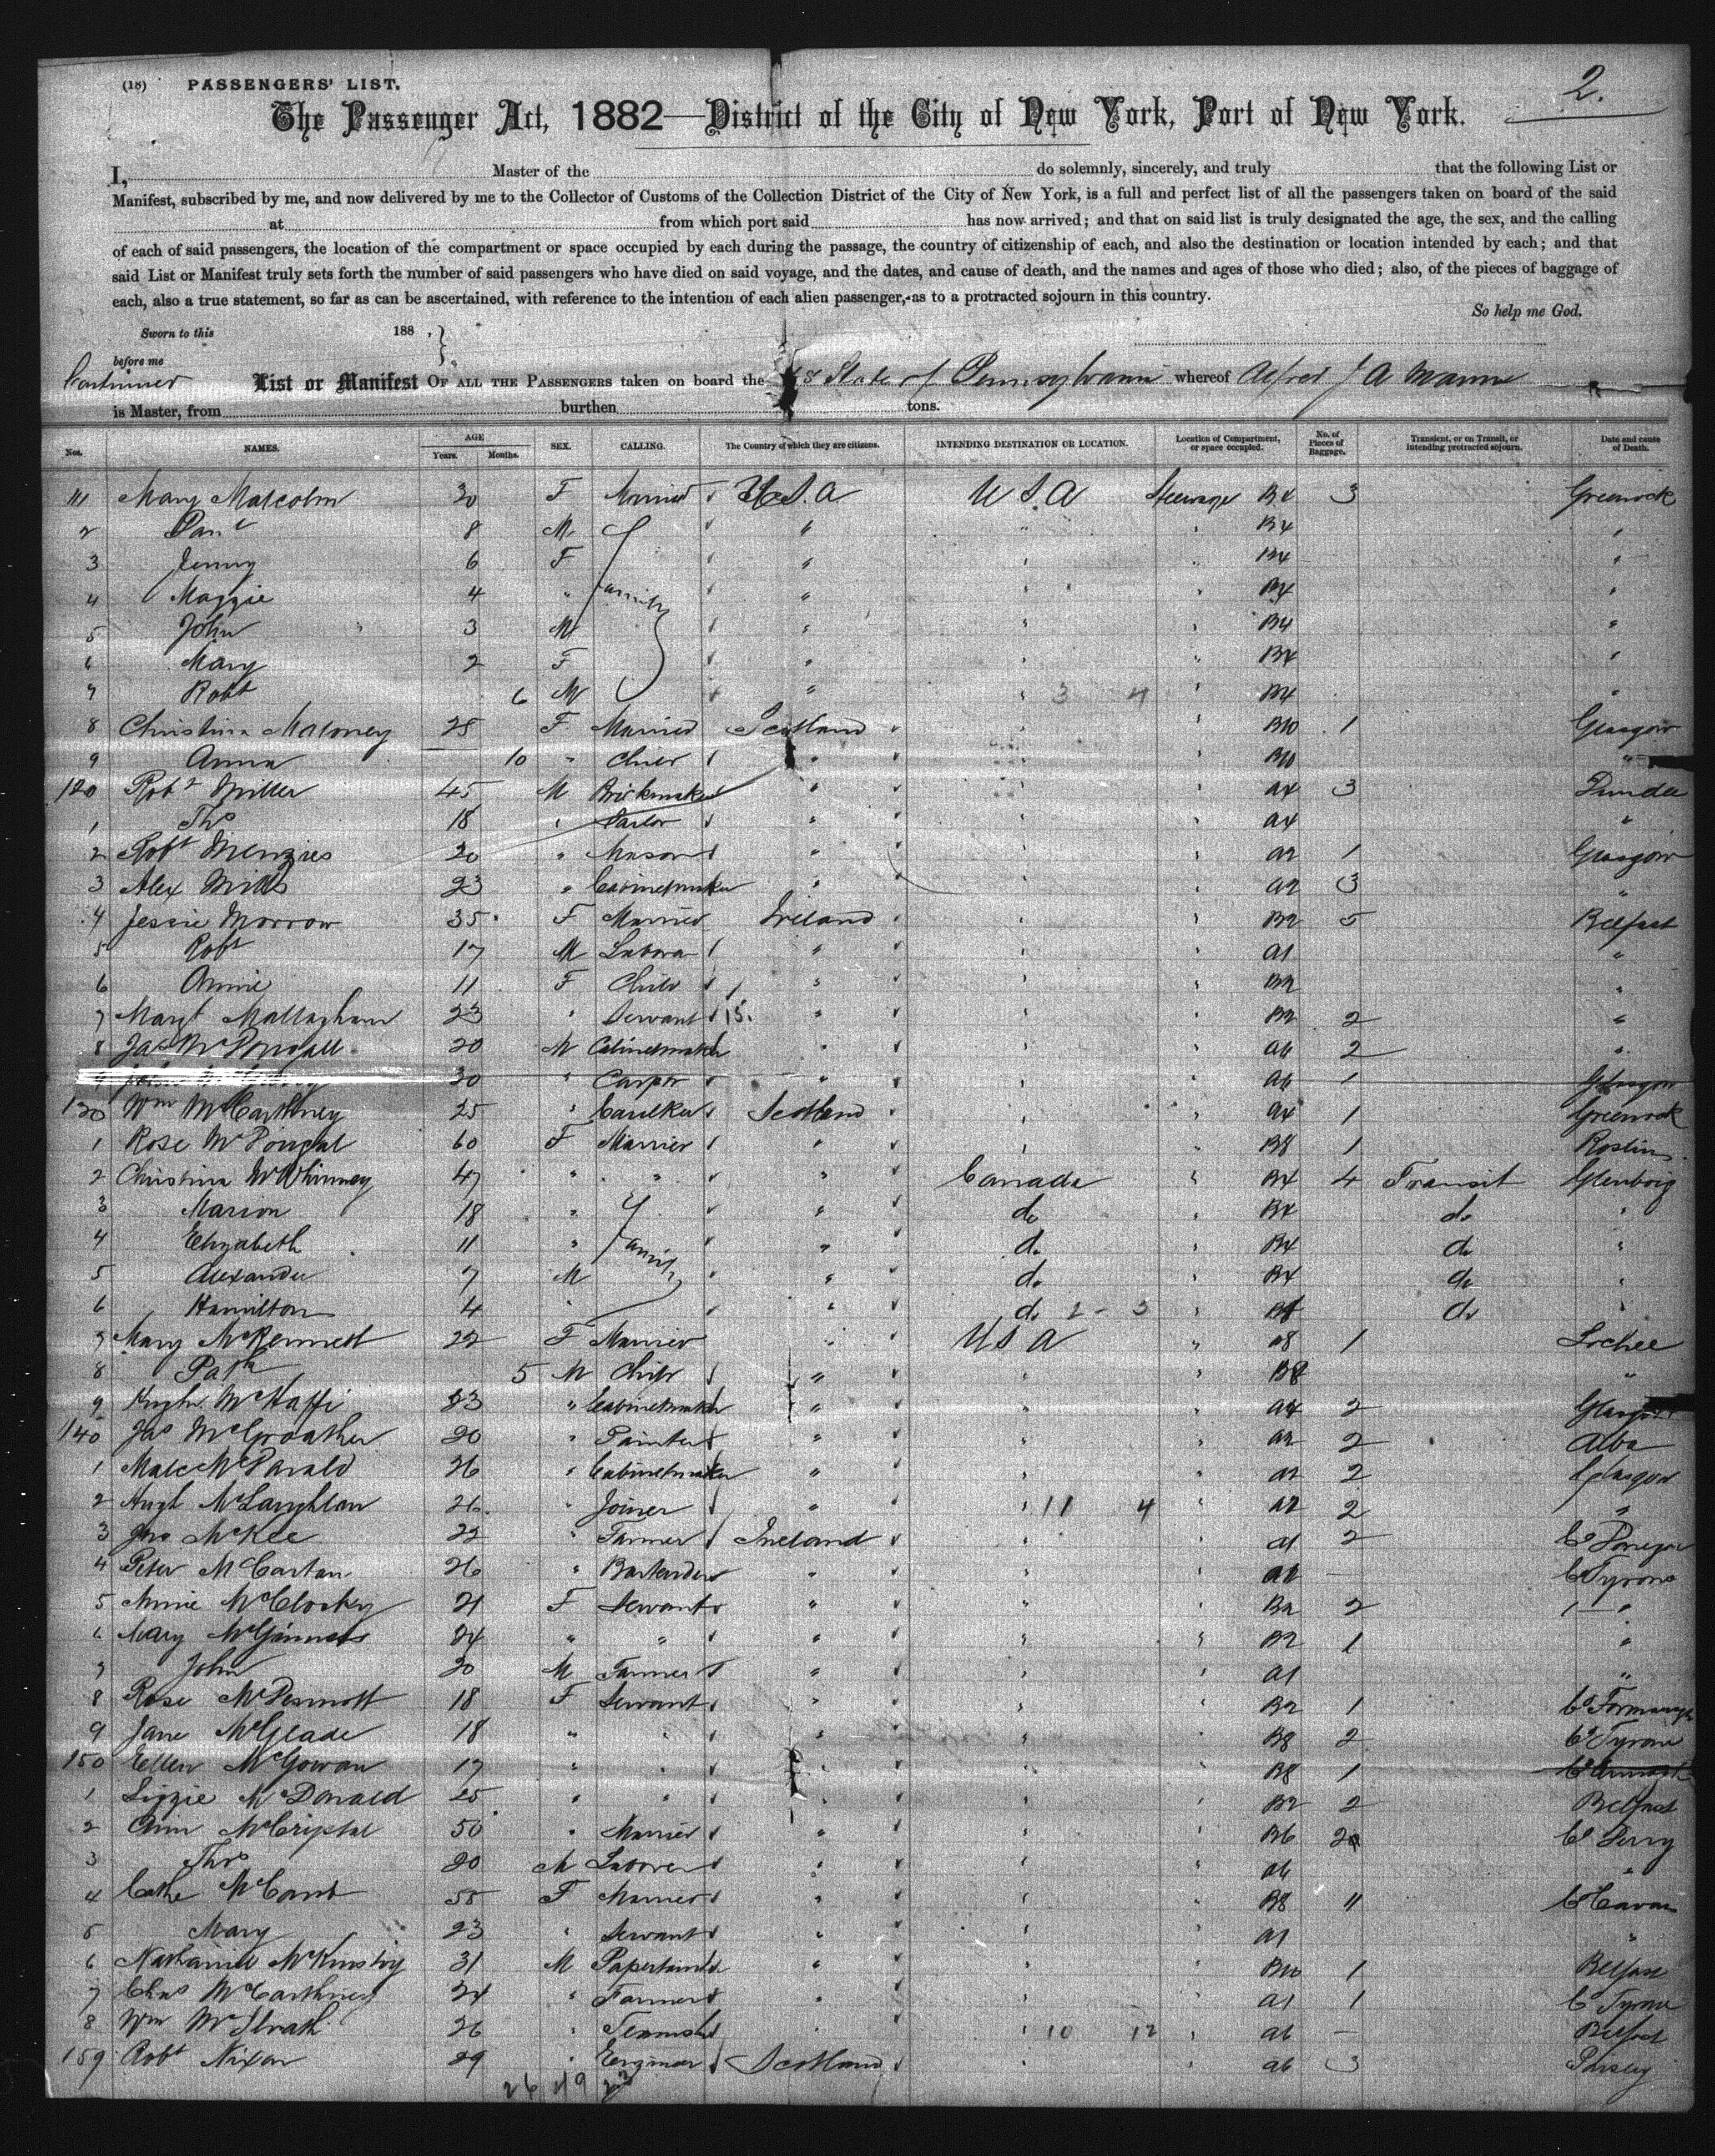 (18) PASSENGERS' LIST.
2.
The Passenger Act, 1882—District of the City of New York, Port of New York.
I, Master of the do solemnly, sincerely, and truly that the following List or
Manifest, subscribed by me, and now delivered by me to the Collector of Customs of the Collection District of the City of New York, is a full and perfect list of all the passengers taken on board of the said
at from which port said has now arrived; and that on said list is truly designated the age, the sex, and the calling
of each of said passengers, the location of the compartment or space occupied by each during the passage, the country of citizenship of each, and also the destination or location intended by each; and that
said List or Manifest truly sets forth the number of said passengers who have died on said voyage, and the dates, and cause of death, and the names and ages of those who died; also, of the pieces of baggage of
each, also a true statement, so far as can be ascertained, with reference to the intention of each alien passenger, as to a protracted sojourn in this country.
So help me God.
Sworn to this 188 ,
before me
Continued List or Manifest OF ALL THE PASSENGERS taken on board the State of Pennsylvania whereof Alfred J A Mann
is Master, from burthen tons.
Nos. NAMES. AGE Years. Months. SEX. CALLING. The Country of which they are citizens. INTENDING DESTINATION OR LOCATION. Location of Compartment, or space occupied. No. of Pieces of Baggage. Transient, or on Transit, or intending protracted sojourn. Date and cause of Death.
111 Mary Malcolm 30 F Married U.S.A U S A Steerage B4 3 Greenock
2 8 M " " B4 "
3 Jenny 6 F " " B4 "
4 Maggie 4 " Family " " B4 "
5 John 3 M " " B4 "
6 Mary 2 F " " B4 "
7 Robt 6 M " " 3 4 B4 "
8 Christina Maloney 25 F Married Scotland " B10 1 Glasgow
9 Anna 10 " Child " " B10 "
120 Robt Miller 45 M Brickmaker " " a4 3 Dundee
1 Thos 18 " Sailor " " a4 "
2 Robt Menzies 20 " Mason " " a2 1 Glasgow
3 Alex Mills 23 " Cabinetmaker " " a2 3 "
4 Jessie Morrow 35 F Married Ireland " B2 5 Belfast
5 Robt 17 M Labora " " a1 "
6 Annie 11 F Child " " B2 "
7 Margt Mallaghan 23 " Servant 15. " " B2 2 "
8 Jas McDougall 20 M Cabinetmaker " " a6 2 "
9 30 " Carptr " " a6 1 Glasgow
130 Wm McCarthney 25 " Caulker Scotland " a4 1 Greenock
1 Rose McDougal 60 F Married " " B8 1 Roslin
2 Christina McWhinney 47 " " " Canada B4 4 Transit Glenboig
3 Marion 18 " " do B4 do "
4 Elizabeth 11 " Family " do B4 do "
5 Alexander 7 M " do B4 do "
6 Hamilton 4 " " do 2 - 3 B4 do "
7 Mary McKermett 22 F Married " U S A B8 1 Lochee
8 Patk 5 M Child " " B8 "
9 Hugh McHaffi 23 " Cabinetmaker " " a4 2 Glasgow
140 Jas McGroather 20 " Painter " " a2 2 Alba
1 Malc McDarald 26 " Cabinetmaker " " a2 2 Glasgow
2 Hugh McLaughlan 26 " Joiner " " 11 4 a2 2 "
3 Jno McKee 22 " Farmer Ireland " a1 2 Co Donegal
4 Peter McCartan 26 " Bartender " " a2 – Co Tyrone
5 Annie McClosky 21 F Servant " " B2 2 "
6 Mary McGinness 24 " " " " B2 1 "
7 John 20 M Farmer " " a1 "
8 Rose McDermott 18 F Servant " " B2 1 Co Formanagh
9 Jane McGlade 18 " " " " B8 2 Co Tyrone
150 Ellen McGowan 17 " " " " B8 1 Co Armagh
1 Lizzie McDonald 25 " " " " B2 2 Belfast
2 Ann McCriptal 50 " Married " " B6 2 Co Derry
3 Thos 20 M Laborer " " a6 "
4 Cathe McCamb 55 F Married " " B8 11 Co Cavan
5 Mary 23 " Servant " " a1 "
6 Nathaniel McKinstry 31 M " " B10 1 Belfast
7 Chas McCarthney 24 " Farmer " " a1 1 Co Tyrone
8 Wm McIlrath 26 " " " 10 12 a6 – Belfast
159 Robt Nixon 29 " Engineer Scotland " a6 3 Paisley
26 49